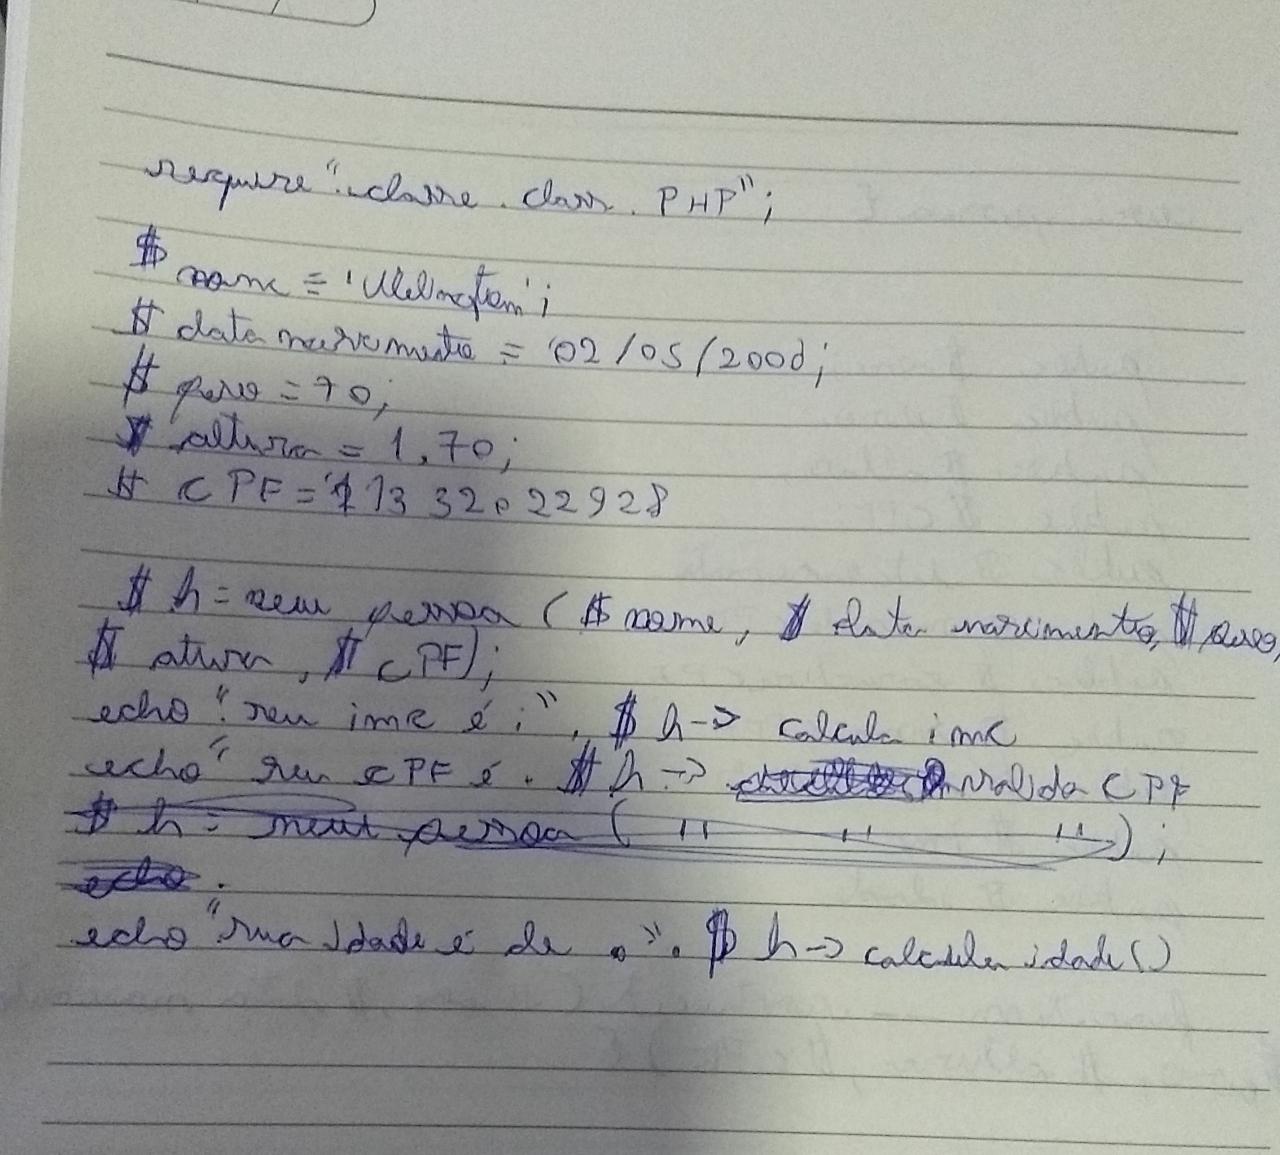 require "classe.class.PHP";
$ nome = 'Welington';
$ data nascimento = 02/05/2000;
$ peso = 70;
$ altura = 1,70;
$ CPF = 113 32022928
$ h = new pessoa ($ nome, $ data nascimento, $ peso,
$ atura, $ CPF);
echo "seu imc é:". $ h-> calcula imc
echo "seu CPF é . $ h-> valida CPF
$ h = new pessoa ( " " " );
echo
echo "sua idade é de ". $ h-> calcula idade()